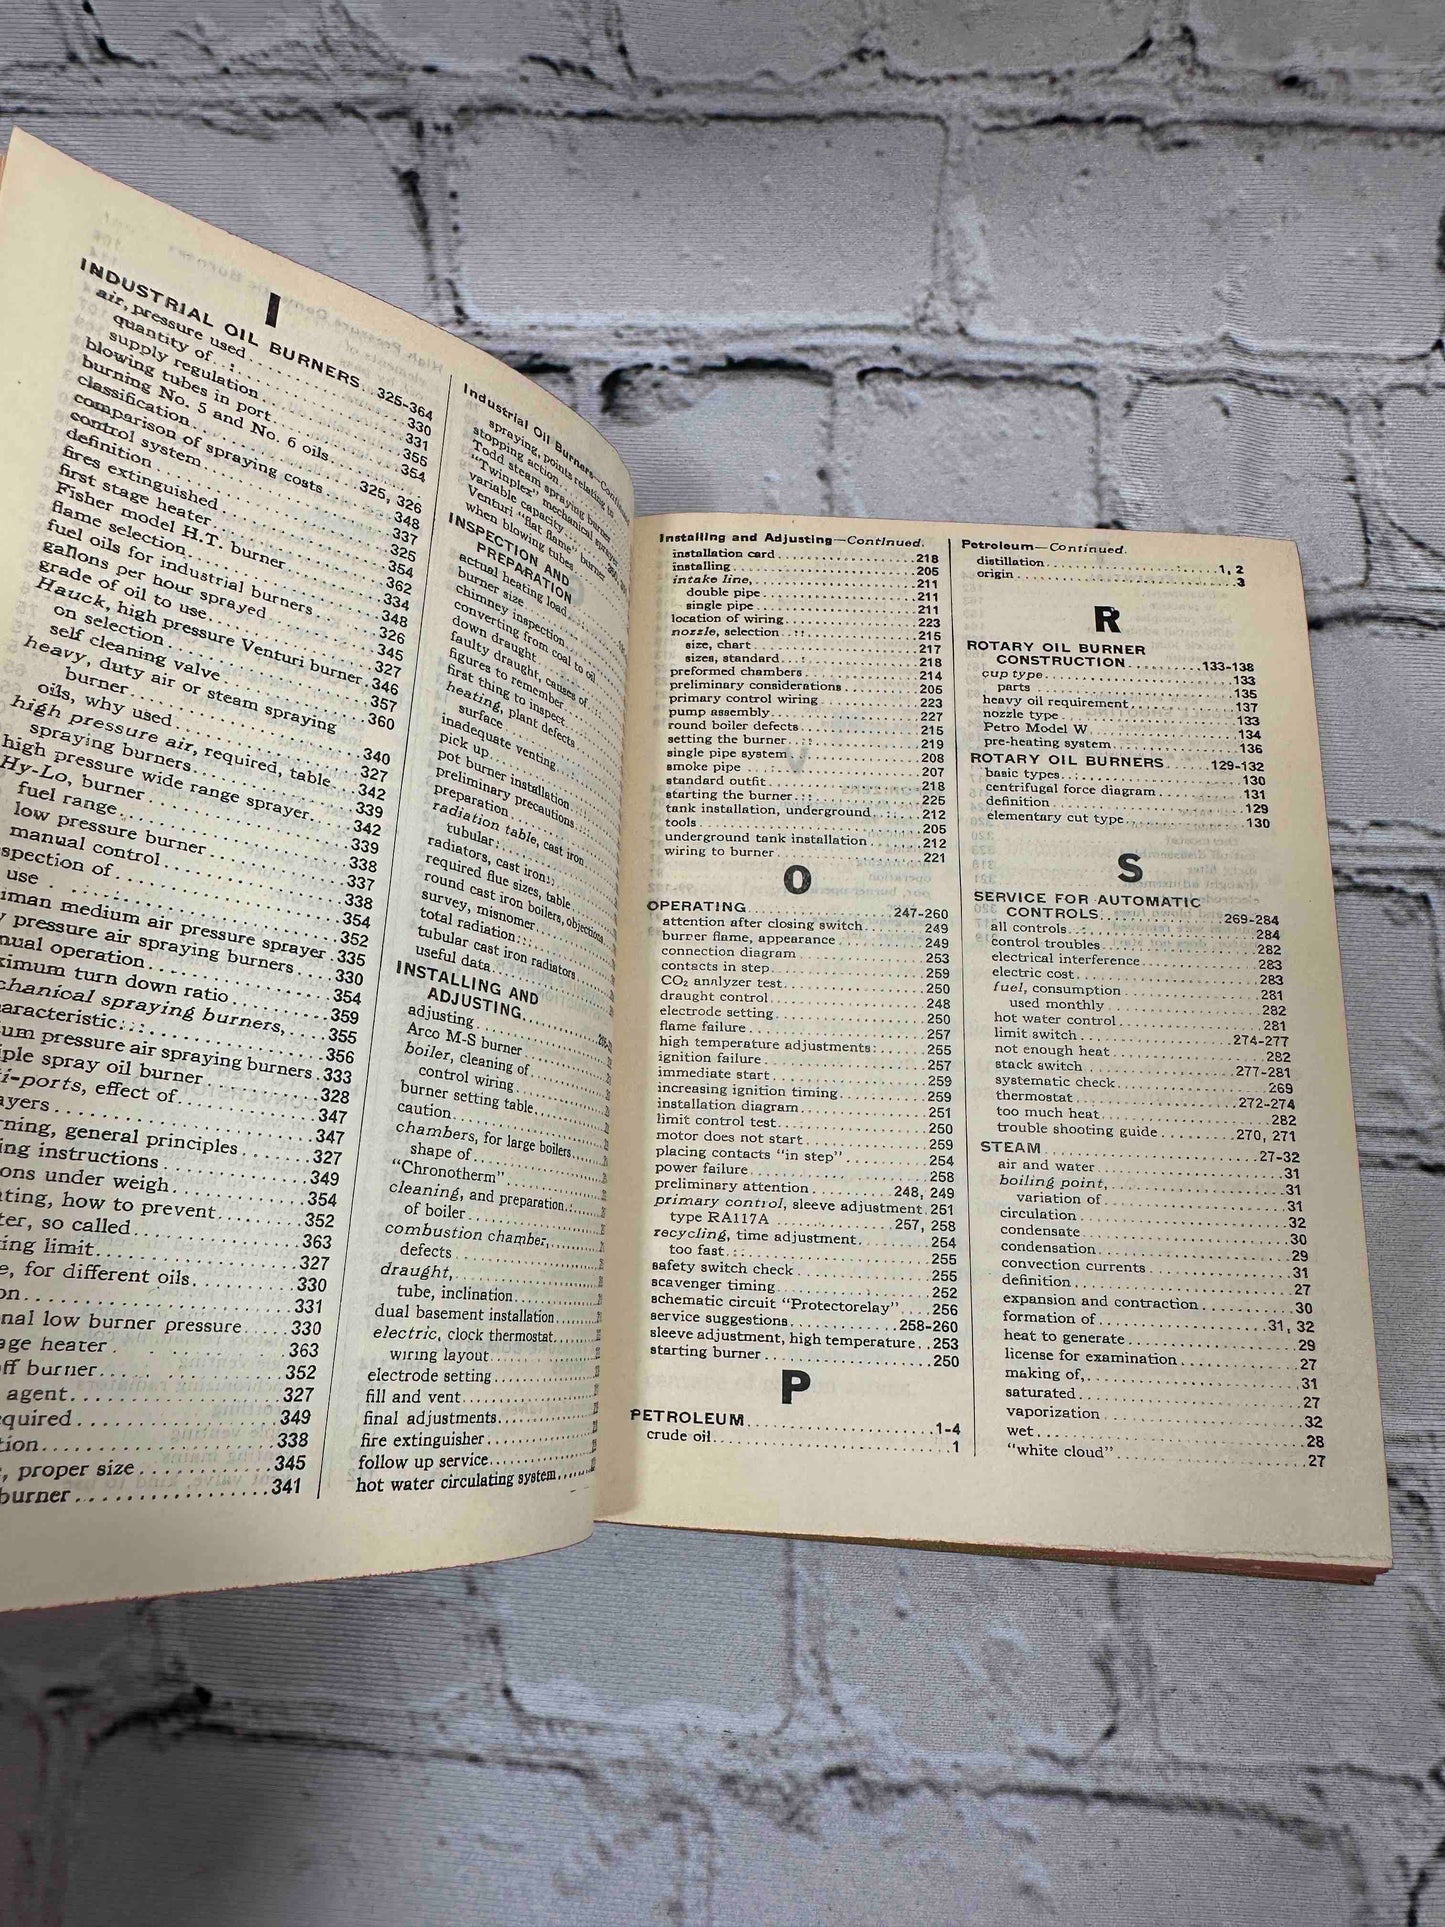 I
INDUSTRIAL OIL BURNERS...325-364
air, pressure used 330
quantity of 331
supply regulation 355
blowing tubes in port 354
burning No. 5 and No. 6 oils
classification 325, 326
comparison of spraying costs 348
control system 337
definition 325
fires extinguished 354
first stage heater 362
Fisher model H.T. burner 334
flame selection 348
fuel oils for industrial burners 326
gallons per hour sprayed 345
grade of oil to use 327
Hauck, high pressure Venturi burner 346
on selection 357
self cleaning valve 360
heavy, duty air or steam spraying
burner 340
oils, why used 327
high pressure air, required, table 342
spraying burners 339
high pressure wide range sprayer 342
Hy-Lo, burner 339
fuel range 338
low pressure burner 337
manual control 338
spection of 354
use 352
man medium air pressure sprayer 335
pressure air spraying burners 330
nual operation 354
ximum turn down ratio 359
chanical spraying burners, 355
aracteristic 356
um pressure air spraying burners 333
iple spray oil burner 328
ti-ports, effect of 347
ayers 347
rning, general principles 327
ing instructions 349
ons under weigh 354
ating, how to prevent 352
ter, so called 363
ing limit 327
e, for different oils 330
on 331
nal low burner pressure 330
age heater 363
off burner 352
agent 327
equired 349
tion 338
, proper size 345
burner 341
Industrial Oil Burners—Continued
spraying, points relating to
stopping action
Todd steam spraying burner
"Twinplex" mechanical sprayer
variable capacity
Venturi "flat flame" burner
when blowing tubes
INSPECTION AND
PREPARATION
actual heating load
burner size
chimney inspection
converting from coal to oil
down draught
faulty draught, causes of
figures to remember
first thing to inspect
heating, plant defects
surface
inadequate venting
pick up
pot burner installation
preliminary precautions
preparation
radiation table, cast iron
tubular
radiators, cast iron
required flue sizes, table
round cast iron boilers, objections
survey, misnomer
total radiation
tubular cast iron radiators
useful data
INSTALLING AND
ADJUSTING
adjusting
Arco M-S burner
boiler, cleaning of
control wiring
burner setting table,
caution
chambers, for large boilers
shape of
"Chronotherm"
cleaning, and preparation
of boiler
combustion chamber,
defects
draught,
tube, inclination
dual basement installation
electric, clock thermostat
wiring layout
electrode setting
fill and vent
final adjustments
fire extinguisher
follow up service
hot water circulating system
Installing and Adjusting—Continued.
installation card 218
installing 205
intake line, 211
double pipe 211
single pipe 211
location of wiring 223
nozzle, selection 215
size, chart 217
sizes, standard 218
preformed chambers 214
preliminary considerations 205
primary control wiring 223
pump assembly 227
round boiler defects 215
setting the burner 219
single pipe system 208
smoke pipe 207
standard outfit 218
starting the burner 225
tank installation, underground 212
tools 205
underground tank installation 212
wiring to burner 221
O
OPERATING 247-260
attention after closing switch 249
burner flame, appearance 249
connection diagram 253
contacts in step 259
CO₂ analyzer test 250
draught control 248
electrode setting 250
flame failure 257
high temperature adjustments 255
ignition failure 257
immediate start 259
increasing ignition timing 259
installation diagram 251
limit control test 250
motor does not start 259
placing contacts "in step" 254
power failure 258
preliminary attention 248, 249
primary control, sleeve adjustment 251
type RA117A 257, 258
recycling, time adjustment 254
too fast 255
safety switch check 255
scavenger timing 252
schematic circuit "Protectorelay" 256
service suggestions 258-260
sleeve adjustment, high temperature 253
starting burner 250
P
PETROLEUM 1-4
crude oil 1
Petroleum—Continued.
distillation 1, 2
origin 3
R
ROTARY OIL BURNER
CONSTRUCTION 133-138
cup type 133
parts 135
heavy oil requirement 137
nozzle type 133
Petro Model W 134
pre-heating system 136
ROTARY OIL BURNERS 129-132
basic types 130
centrifugal force diagram 131
definition 129
elementary cut type 130
S
SERVICE FOR AUTOMATIC
CONTROLS 269-284
all controls 284
control troubles 282
electrical interference 283
electric cost 283
fuel, consumption 281
used monthly 282
hot water control 281
limit switch 274-277
not enough heat 282
stack switch 277-281
systematic check 269
thermostat 272-274
too much heat 282
trouble shooting guide 270, 271
STEAM 27-32
air and water 31
boiling point, 31
variation of 31
circulation 32
condensate 30
condensation 29
convection currents 31
definition 27
expansion and contraction 30
formation of 31, 32
heat to generate 29
license for examination 27
making of, 31
saturated 27
vaporization 32
wet 28
"white cloud" 27